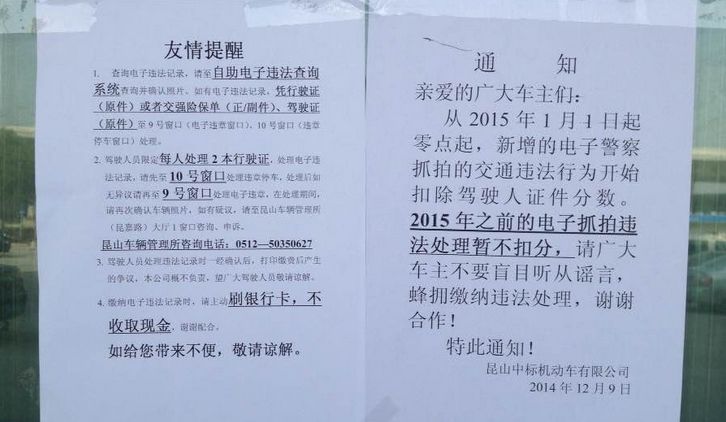 友情提醒
1. 查询电子违法记录，请至自助电子违法查询
系统查询并确认照片。如有电子违法记录，凭行驶证
（原件）或者交强险保单（正/副件）、驾驶证
（原件）至9号窗口（电子违章窗口），10号窗口（违章
停车窗口）处理。
2. 驾驶人员限定每人处理2本行驶证，处理电子违
法记录，请先至10号窗口处理违章停车，处理后如
无异议请再至9号窗口处理电子违章，在处理期间，
请再次确认车辆照片，如有疑议，请至昆山车辆管理所
（昆嘉路）大厅1窗口咨询、申诉。
昆山车辆管理所咨询电话：0512—50350627
3. 驾驶人员处理违法记录时一经确认后，打印缴费后产生
的争议，本公司概不负责，望广大驾驶人员敬请谅解。
4. 缴纳电子违法记录时，请主动刷银行卡，不
收取现金，谢谢配合。
如给您带来不便，敬请谅解。
通 知
亲爱的广大车主们：
从2015年1月1日起
零点起，新增的电子警察
抓拍的交通违法行为开始
扣除驾驶人证件分数。
2015年之前的电子抓拍违
法处理暂不扣分，请广大
车主不要盲目听从谣言，
蜂拥缴纳违法处理，谢谢
合作！
特此通知！
昆山中标机动车有限公司
2014年12月9日